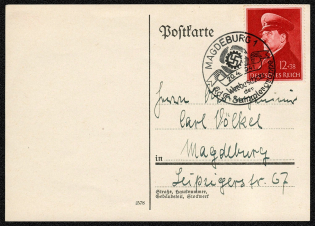 Postkarte
MAGDEBURG 1
12+38
DEUTSCHES REICH
Herrn
Carl Völkel
in Magdeburg
Leipzigerstr 67
Straße, Hausnummer,
Gebäudeteil, Stockwerk